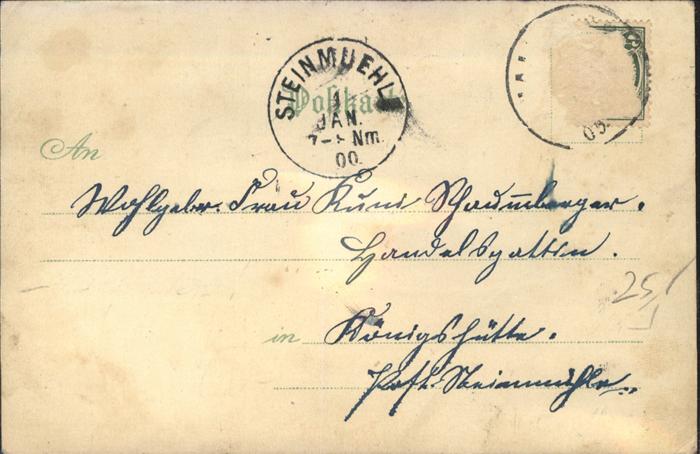 STEINMUEHLE
1
JAN.
7-8 Nm.
00.
Postkarte
An
Wohlgebor. Frau Kuni Schaumberger.
Handelsgattin.
in Königshütte.
Post. Steinmühle.
25